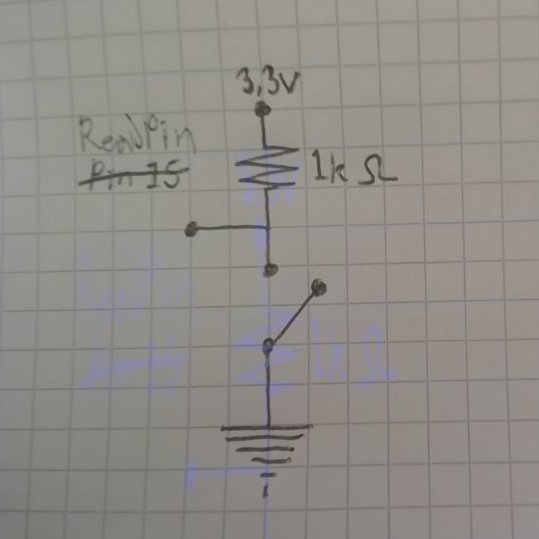 3,3V
ReadPin
Pin 15
1k Ω